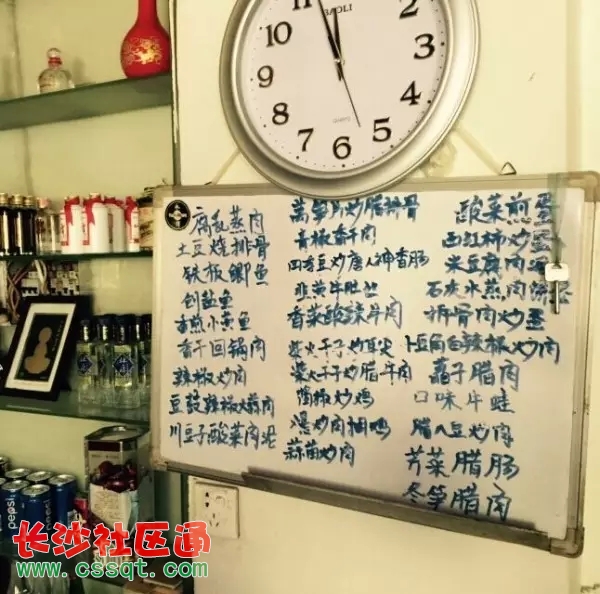 BAOLI
11
2
3
4
5
6
7
8
9
10
QUARTZ
腐乳蒸肉
土豆烧排骨
铁板鲫鱼
剁盐鱼
香煎小黄鱼
香干回锅肉
辣椒炒肉
豆豉辣椒火焙肉
川豆子酸菜肉泥
莴笋片炒腊排骨
青椒香干肉
四季豆炒唐人神香肠
韭黄牛肚丝
香菜酸辣牛肉
柴火干子炒耳尖
柴火干子炒腊牛肉
陶椒炒鸡
湯炒肉
蒜苗炒肉
酸菜煎蛋
西红柿炒蛋
米豆腐肉泥
石灰水蒸肉
排骨肉炒蛋
卜豆角白辣椒炒肉
藠子腊肉
口味牛蛙
腊八豆炒肉
芹菜腊肠
冬笋腊肉
pepsi
长沙社区通
www.cssqt.com